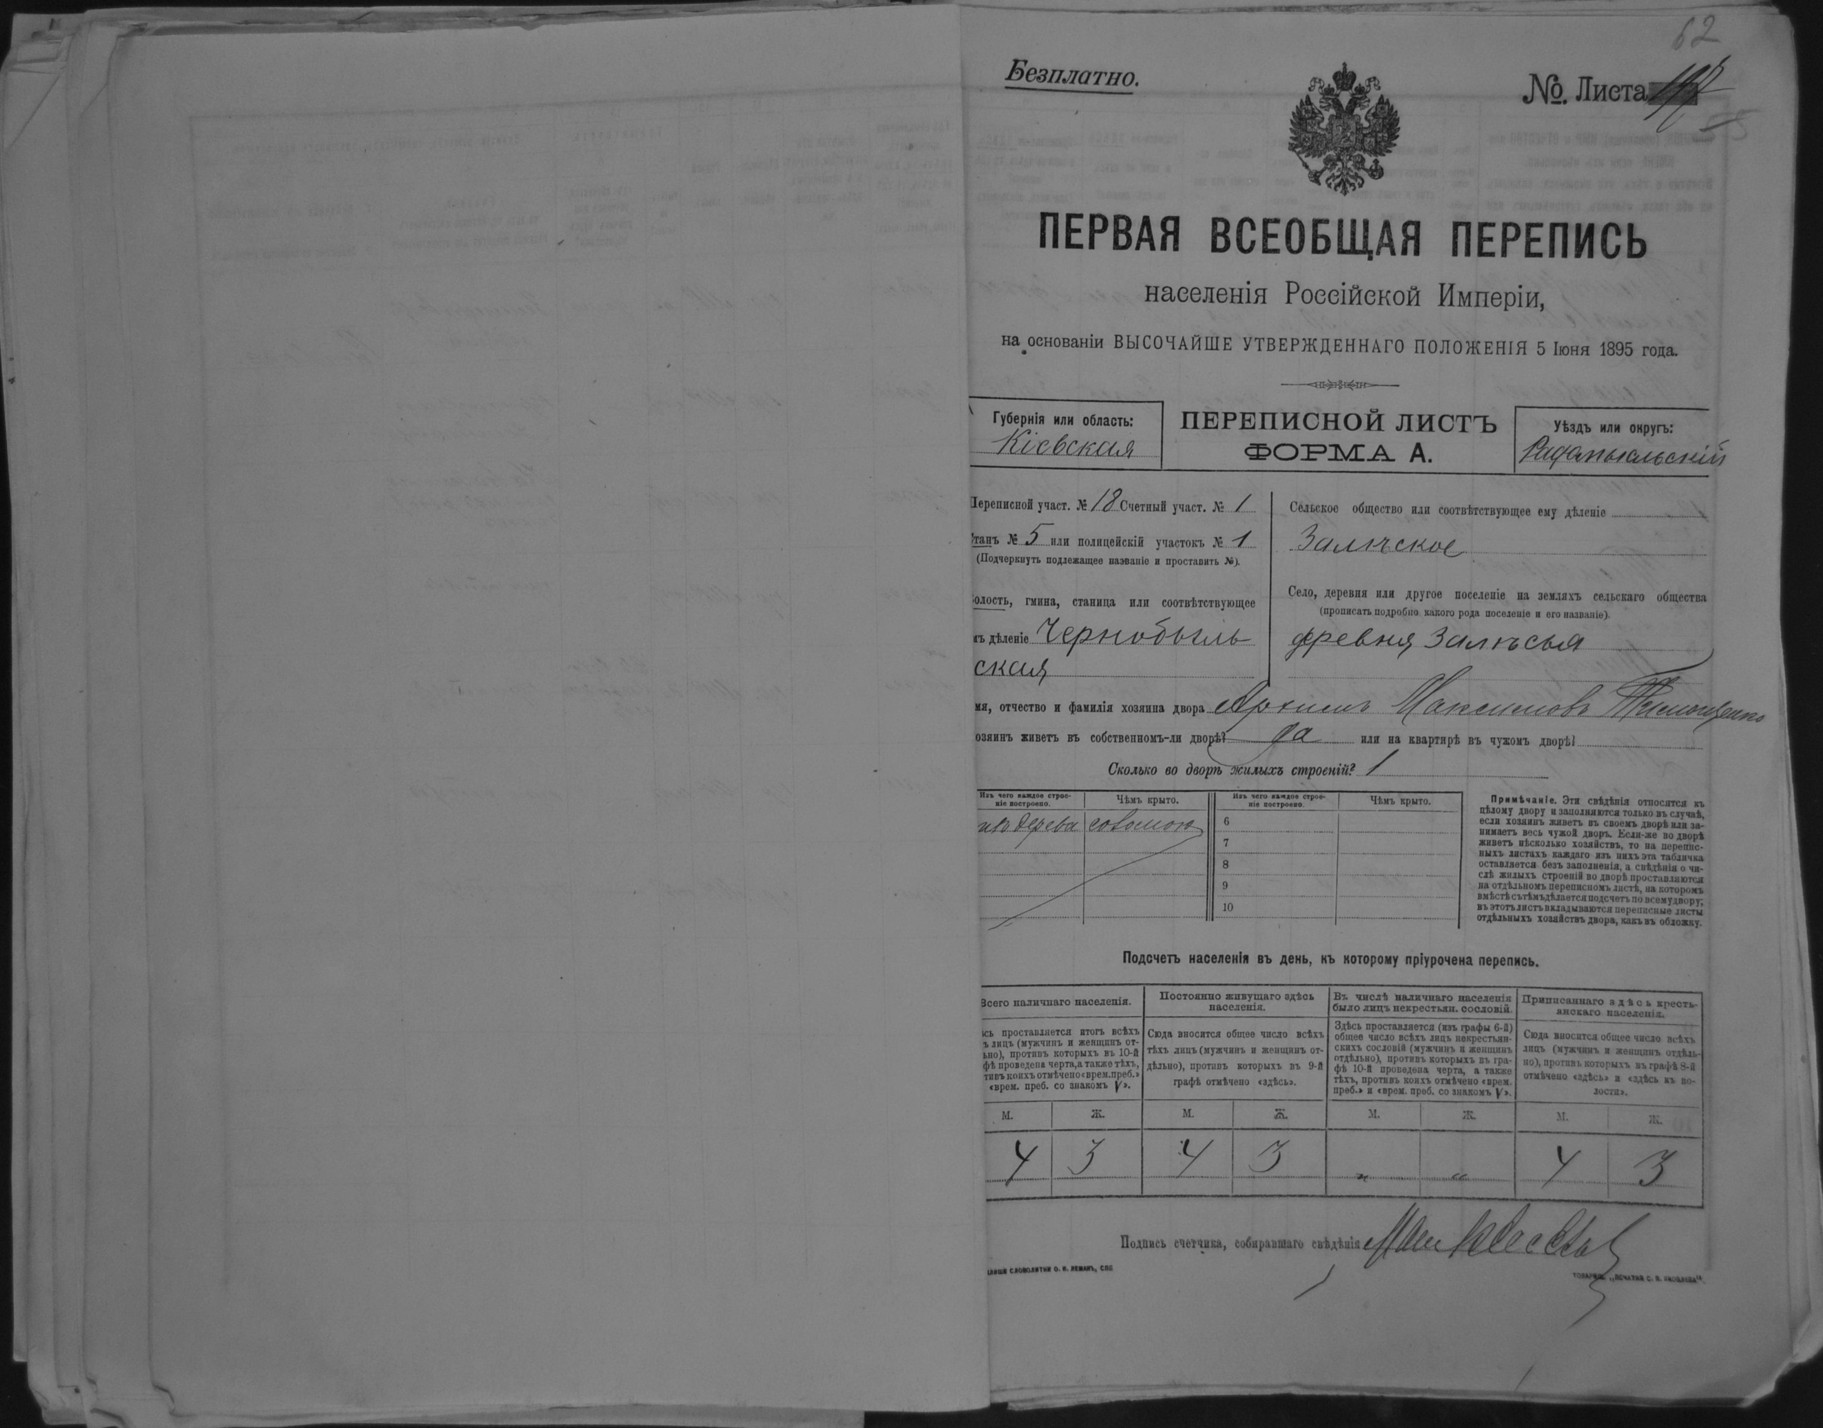 62
Безплатно.
№. Листа
ПЕРВАЯ ВСЕОБЩАЯ ПЕРЕПИСЬ
населенія Россійской Имперіи,
на основаніи ВЫСОЧАЙШЕ УТВЕРЖДЕННАГО ПОЛОЖЕНІЯ 5 Іюня 1895 года.
Губернія или область:
Кіевская
ПЕРЕПИСНОЙ ЛИСТЪ
ФОРМА А.
Уѣздъ или округъ:
Радомысльскій
Переписной участ. № 18 Счетный участ. № 1
Станъ № 5 или полицейскій участокъ № 1
(Подчеркнуть подлежащее названіе и проставить №).
волость, гмина, станица или соотвѣтствующее
мъ дѣленіе Чернобыль
ская
Сельское общество или соотвѣтствующее ему дѣленіе
Залѣское
Село, деревня или другое поселеніе на земляхъ сельскаго общества
(прописать подробно какого рода поселеніе и его названіе).
древня Залѣсья
мя, отчество и фамилія хозяина двора Архипъ Максимовъ Тимощенко
озяинъ живетъ въ собственномъ-ли дворѣ? да или на квартирѣ въ чужомъ дворѣ?
Сколько во дворѣ жилыхъ строеній? 1
Изъ чего каждое строе-
ніе построено.
Чѣмъ крыто.
изъ дерева соломою
Изъ чего каждое строе-
ніе построено.
Чѣмъ крыто.
6
7
8
9
10
Примѣчаніе. Эти свѣдѣнія относятся къ
цѣлому двору и заполняются только въ случаѣ,
если хозяинъ живетъ въ своемъ дворѣ или за-
нимаетъ весь чужой дворъ. Если-же во дворѣ
живетъ нѣсколько хозяйствъ, то на перепис-
ныхъ листахъ каждаго изъ нихъ эта табличка
оставляется безъ заполненія, а свѣдѣнія о чи-
слѣ жилыхъ строеній во дворѣ проставляются
на отдѣльномъ переписномъ листѣ, на которомъ
вмѣстѣ съ тѣмъ дѣлается подсчетъ по всему двору;
въ этотъ листъ вкладываются переписные листы
отдѣльныхъ хозяйствъ двора, какъ въ обложку.
Подсчетъ населенія въ день, къ которому пріурочена перепись.
Всего наличнаго населенія.
сь проставляется итогъ всѣхъ
ъ лицъ (мужчинъ и женщинъ от-
ьно), противъ которыхъ въ 10-й
фѣ проведена черта, а также тѣхъ,
тивъ коихъ отмѣчено «врем. преб.»
«врем. преб. со знакомъ V».
Постоянно живущаго здѣсь
населенія.
Сюда вносится общее число всѣхъ
тѣхъ лицъ (мужчинъ и женщинъ от-
дѣльно), противъ которыхъ въ 9-й
графѣ отмѣчено «здѣсь».
Въ числѣ наличнаго населенія
было лицъ некрестьян. сословій.
Здѣсь проставляется (изъ графы 6-й)
общее число всѣхъ лицъ некрестьян-
скихъ сословій (мужчинъ и женщинъ
отдѣльно), противъ которыхъ въ гра-
фѣ 10-й проведена черта, а также
тѣхъ, противъ коихъ отмѣчено «врем.
преб.» и «врем. преб. со знакомъ V».
Приписаннаго здѣсь кресть-
янскаго населенія.
Сюда вносится общее число всѣхъ
лицъ (мужчинъ и женщинъ отдѣль-
но), противъ которыхъ въ графѣ 8-й
отмѣчено «здѣсь» и «здѣсь къ во-
лости».
М. Ж. М. Ж. М. Ж. М. Ж.
4 3 4 3 „ „ 4 3
Подпись счетчика, собиравшаго свѣдѣнія
СЛОВОЛИТНИ О. И. ЛЕМАНЪ, СПБ.
ТОВАРИЩ. „ПЕЧАТНЯ С. П. ЯКОВЛЕВА".